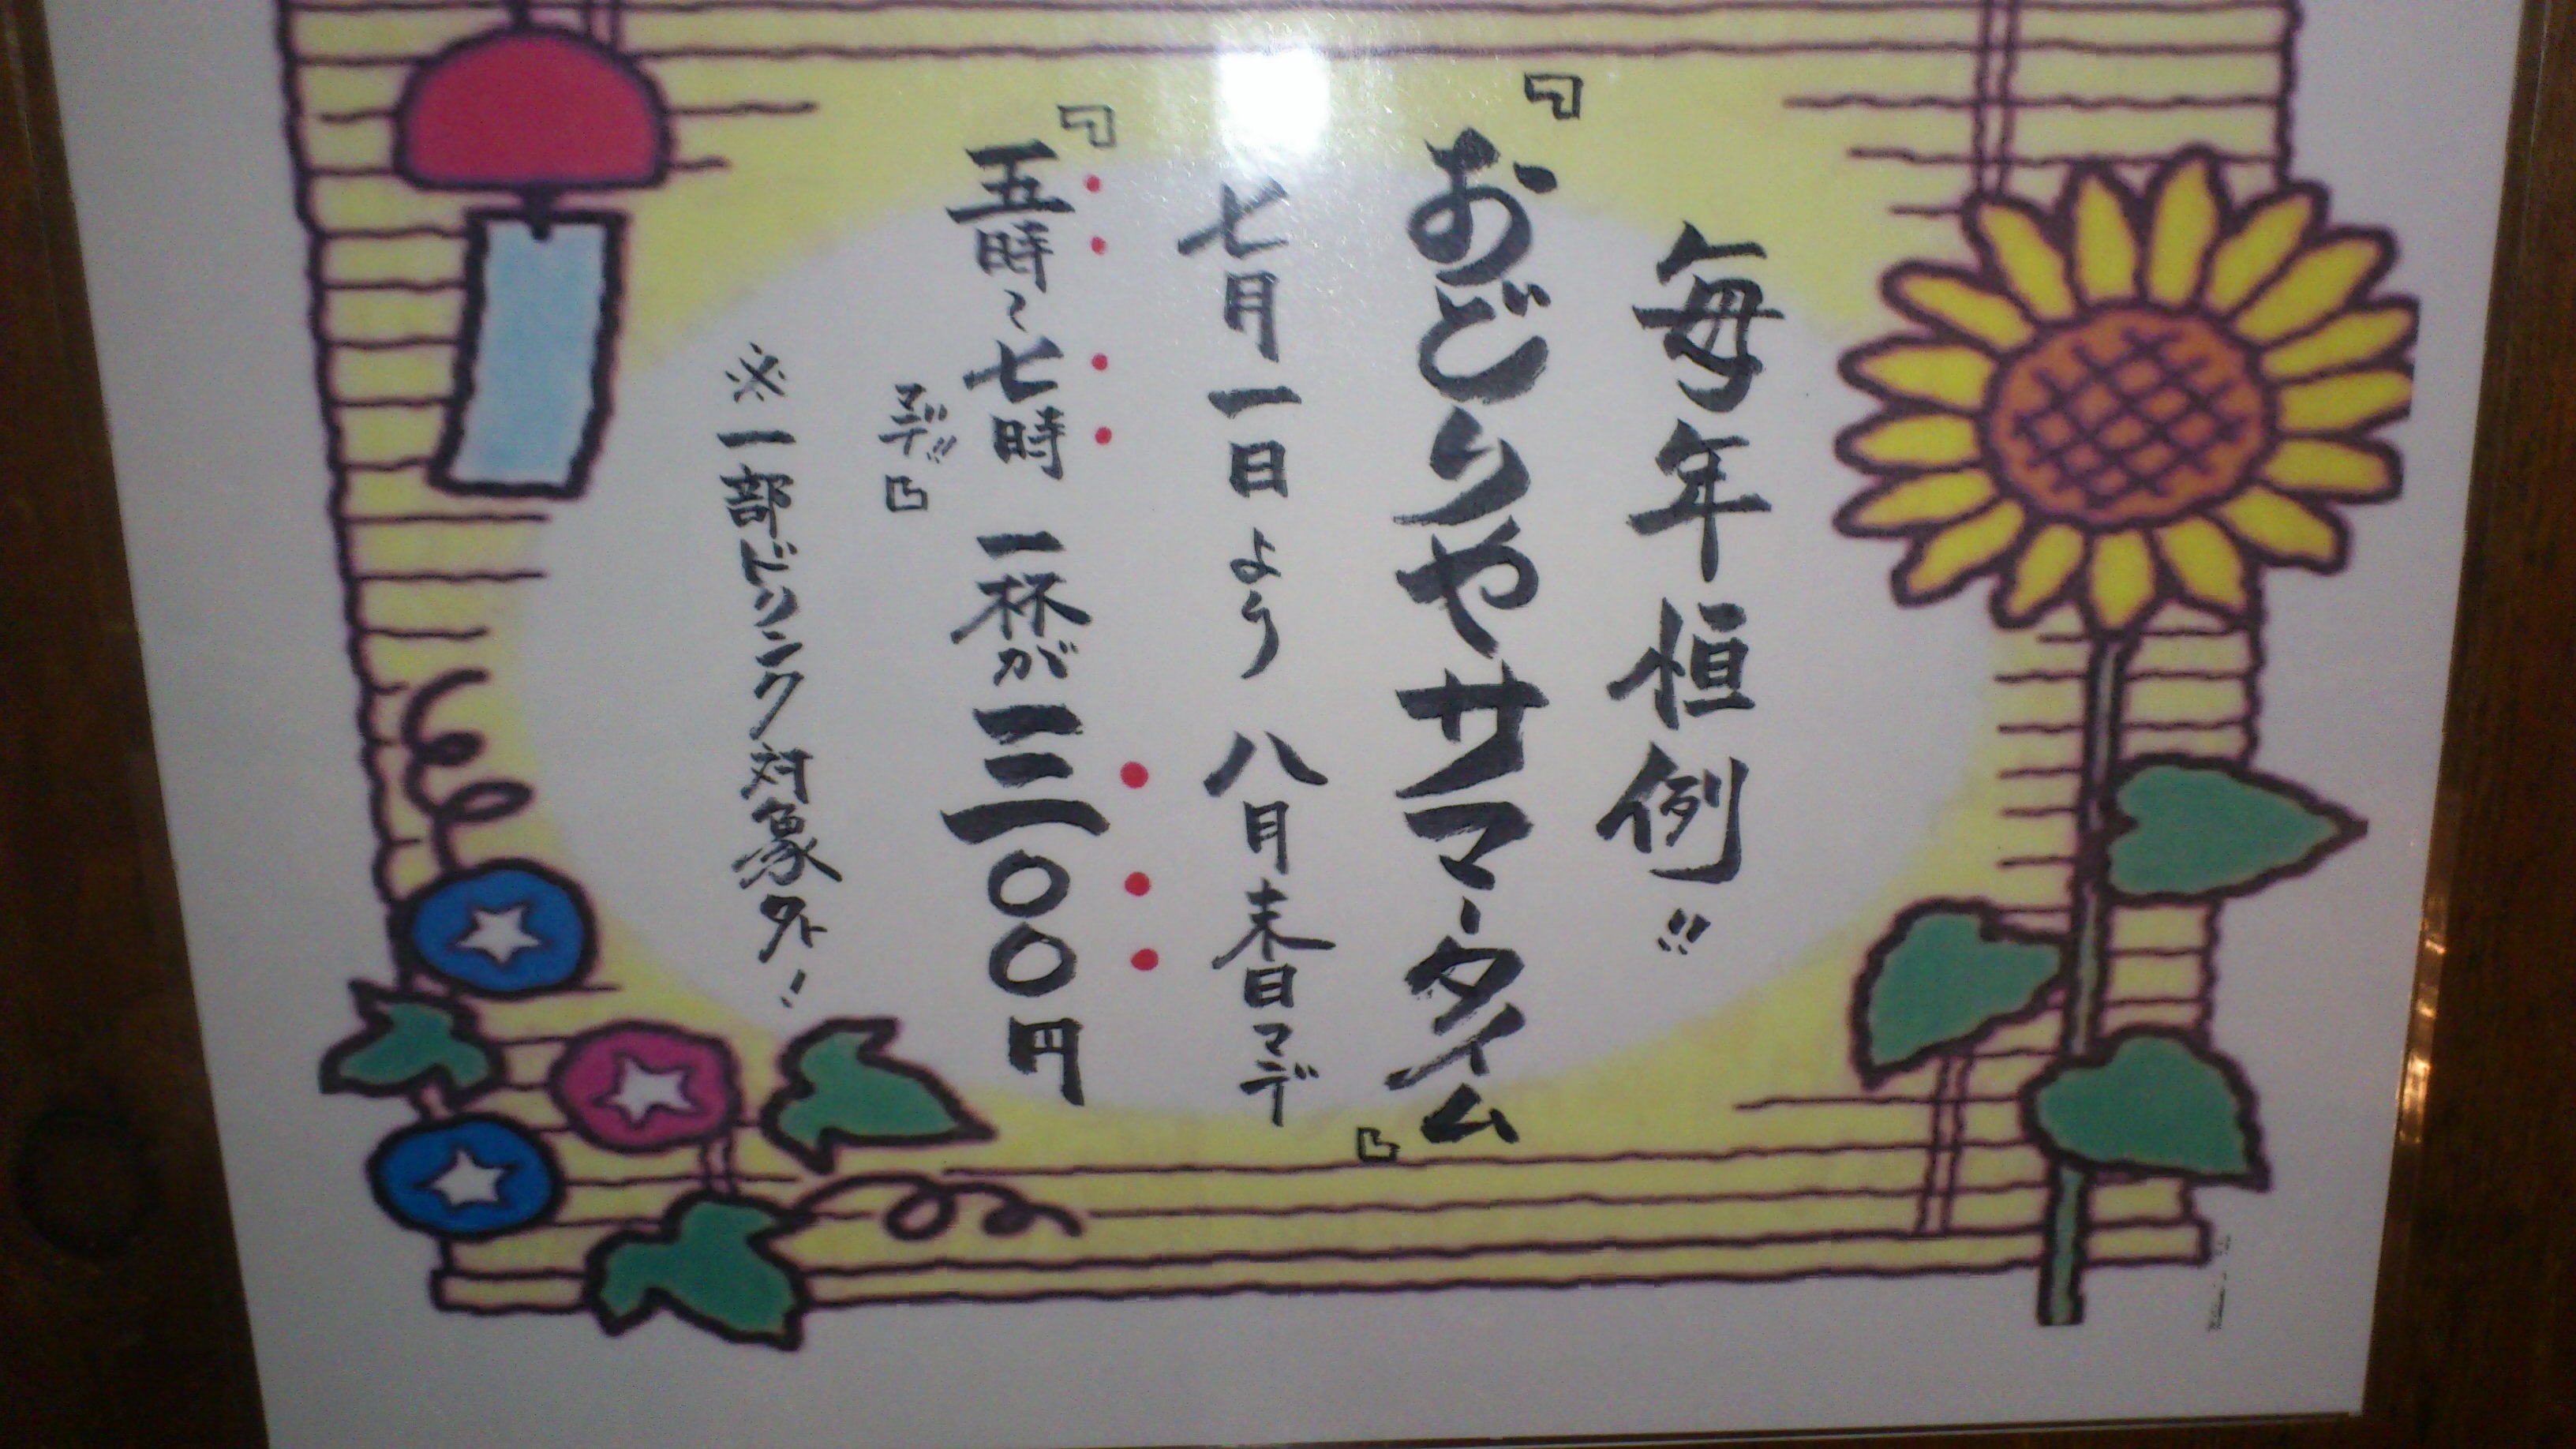 毎年恒例!!
『おどりやサマータイム』
七月一日より 八月末日マデ
『五時〜七時 一杯が三一〇〇円
マデ!!』
※一部ドリンク対象外!